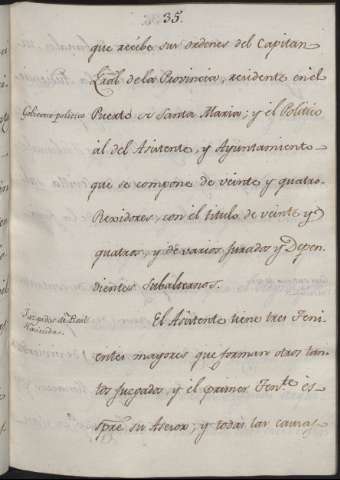 35.
que recibe sus ordenes del Capitan
Gral de la Provincia, residente en el
Govierno politico
Puerto de Santa Maria; y el Politico
al del Asistente, y Ayuntamiento
que se compone de veinte y quatro
Rexidores con el titulo de veinte y
quatros, y de varios Jurados y Depen-
dientes subalternos.
Juzgados de Real
Hacienda.
El Asistente tiene tres Teni-
entes mayores que forman otros tan-
tos juzgados, y el primer Tente es
spre su Asesor; y todas las causas